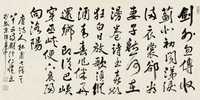 劍外忽傳收
薊北初聞涕淚
滿衣裳卻看
妻子愁何在
漫卷詩書喜欲
狂白日放歌須
縱酒青春作伴好
還鄉即從巴峽
穿巫峽便下襄陽
向洛陽